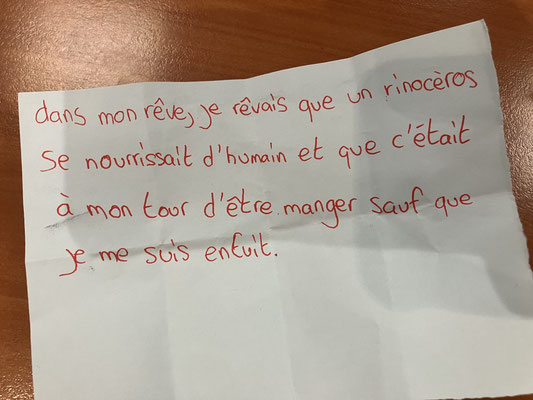 dans mon rêve, je rêvais que un rinocèros
se nourrissait d'humain et que c'était
à mon tour d'être manger sauf que
je me suis enfuit.